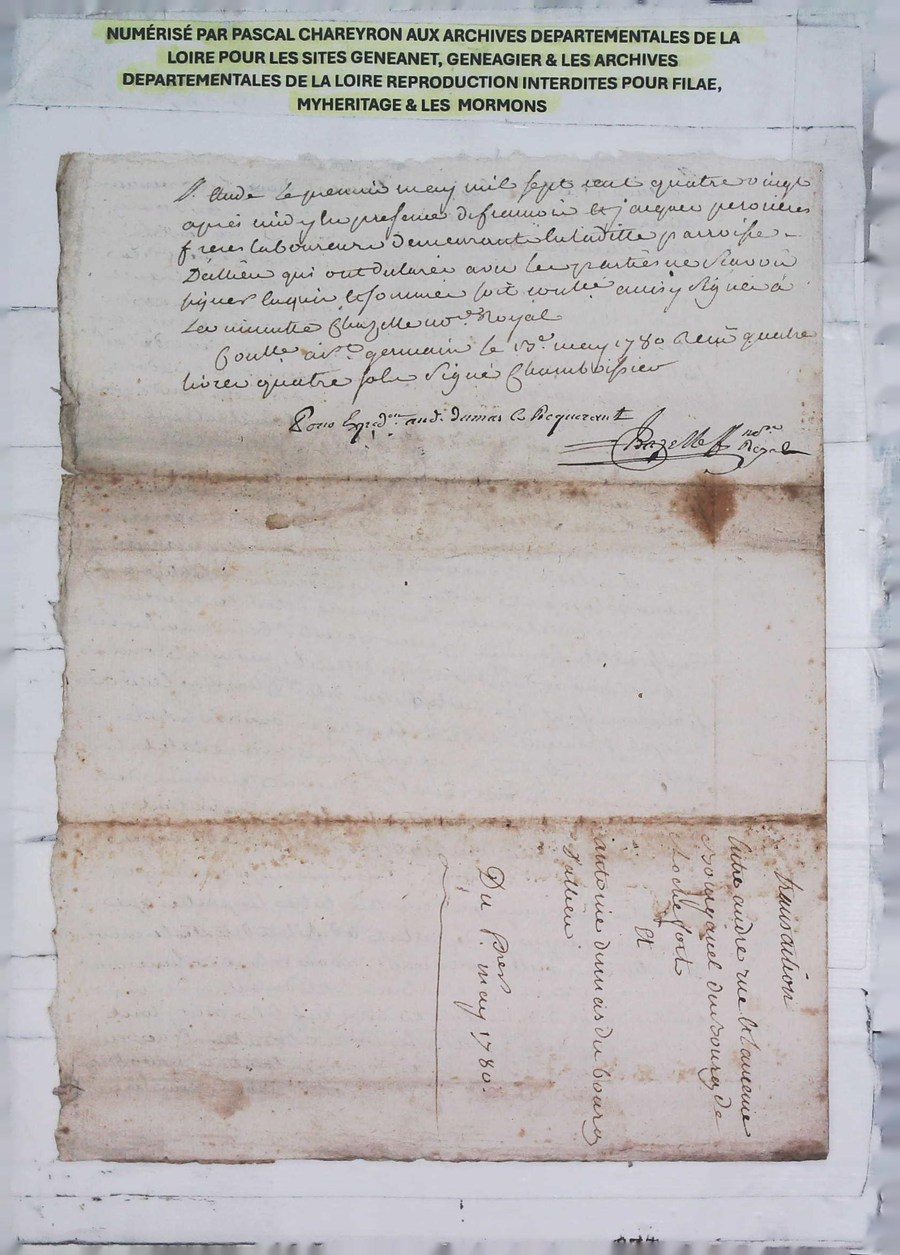 NUMÉRISÉ PAR PASCAL CHAREYRON AUX ARCHIVES DEPARTEMENTALES DE LA
LOIRE POUR LES SITES GENEANET, GENEAGIER & LES ARCHIVES
DEPARTEMENTALES DE LA LOIRE REPRODUCTION INTERDITES POUR FILAE,
MYHERITAGE & LES MORMONS
le premier may mil sept cent quatre vingt
après midy En presence de francois Et jacques peronieres
freres laboureurs demeurants en laditte parroisse
Dallieu qui ont declarés avec les parties ne scavoir
signer Enquis Et sommés soit controllé ainsy signé à
La minutte Chazelle no.re Royal
Con.lle a s.t germain le 13.e may 1780 Reçu quatre
livres quatre sols Signé Chamboissier
Pour Expéd.on aud. dumas ce Requerant
Chazelle no.re
Royal
transaction
Entre andre rue Et
du bourg de
Rochefort
Et
antoine dumas du bourg
D'allieu
Du P.er may 1780.